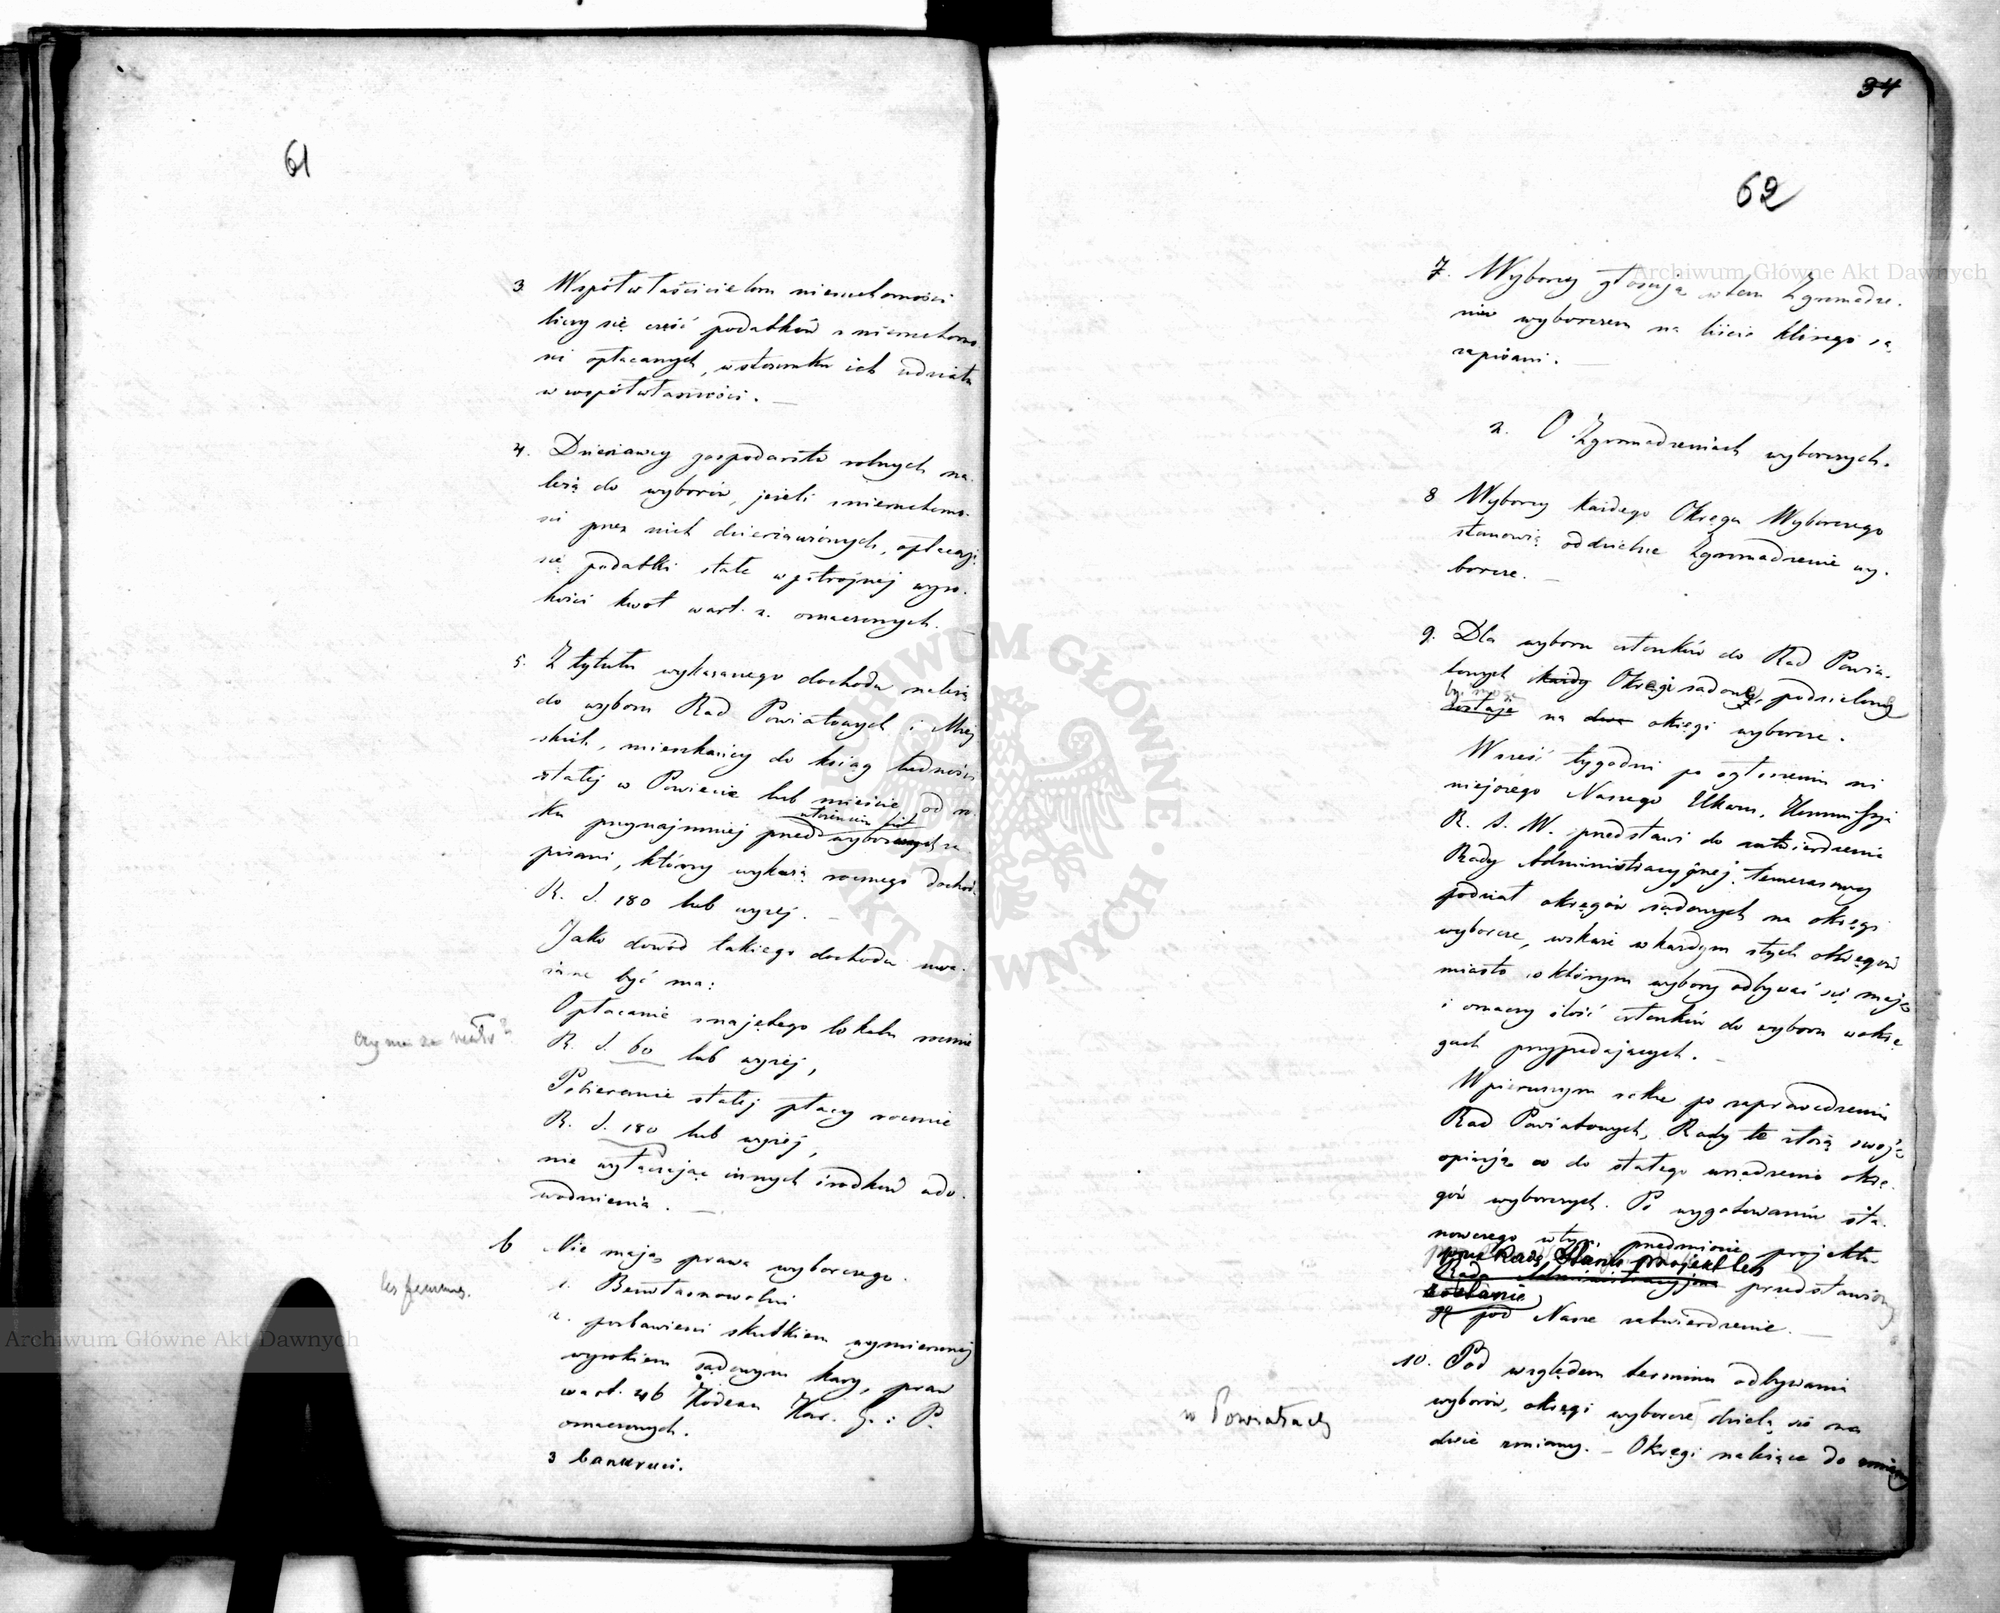 61
3. Współwłaścicielom nieruchomości
liczy się część podatków z nieruchomo-
ści opłacanych, w stosunku ich udziału
w współwłasności. —
4. Dzierżawcy gospodarstw rolnych na-
leżą do wyborów, jeżeli z nieruchomo-
ści przez nich dzierżawionych, opłacają
się podatki stałe w potrójnej wyso-
kości kwot w art. 2. oznaczonych. —
5. Z tytułu wykazanego dochodu należą
do wyboru Rad Powiatowych i Miej
skich, mieszkańcy do ksiąg ludności
stałej w Powiecie lub mieście, od ro-
ku przynajmniej przed
pisani, którzy wykażą rocznego dochodu
R. S. 180 lub wyżej. —
Jako dowód takiego dochodu uwa-
żane być ma:
Opłacanie z najętego lokalu rocznie
czy nie za mało?
R. S. 60 lub wyżej,
Pobieranie stałej płacy rocznie
R. S. 180 lub wyżej,
nie wyłączając innych środków udo-
wodnienia. —
6 Nie mają prawa wyborczego.
les femmes.
1. Bezwłasnowolni
2. pozbawieni skutkiem wymierzonej
wyrokiem sądowym kary, praw
w art. 46 Kodexu Kar. G. i P.
oznaczonych.
3 bankruci.
34
62
7. Wyborcy głosują w tem Zgromadze-
niu wyborczem na liście którego są
zapisani. —
2. O Zgromadzeniach wyborczych.
8 Wyborcy każdego Okręgu Wyborczego
stanowią oddzielne Zgromadzenie wy-
borcze. —
9. Dla wyboru członków do Rad Powia-
towych każdy Okręg sądowy, podzielony
być może
zostaje na dwa okręgi wyborcze.
W sześć tygodni po ogłoszeniu ni
niejszego Naszego Ukazu, Kommissya
R. S. W. przedstawi do zatwierdzenia
Rady Administracyjnej tymczasowy
podział okręgów sądowych na okręgi
wyborcze, wskaże w każdym z tych okręgów
miasto w którym wybory odbywać się mają
i oznaczy ilość członków do wyboru w okrę
gach przypadających. —
W pierwszym roku po zaprowadzeniu
Rad Powiatowych, Rady te złożą swoję
opinję co do stałego urządzenia okrę-
gów wyborczych. Po wygotowaniu sta-
nowczego w tym przedmiocie projektu
przez Radę Stanu projekt ten
Rada Administracyjna przedstawiony
zostanie
go pod Nasze zatwierdzenie. —
10. Pod względem terminu odbywania
wyborów, okręgi wyborcze dzielą się na
w Powiatach
dwie zmiany. — Okręgi należące do zmiany